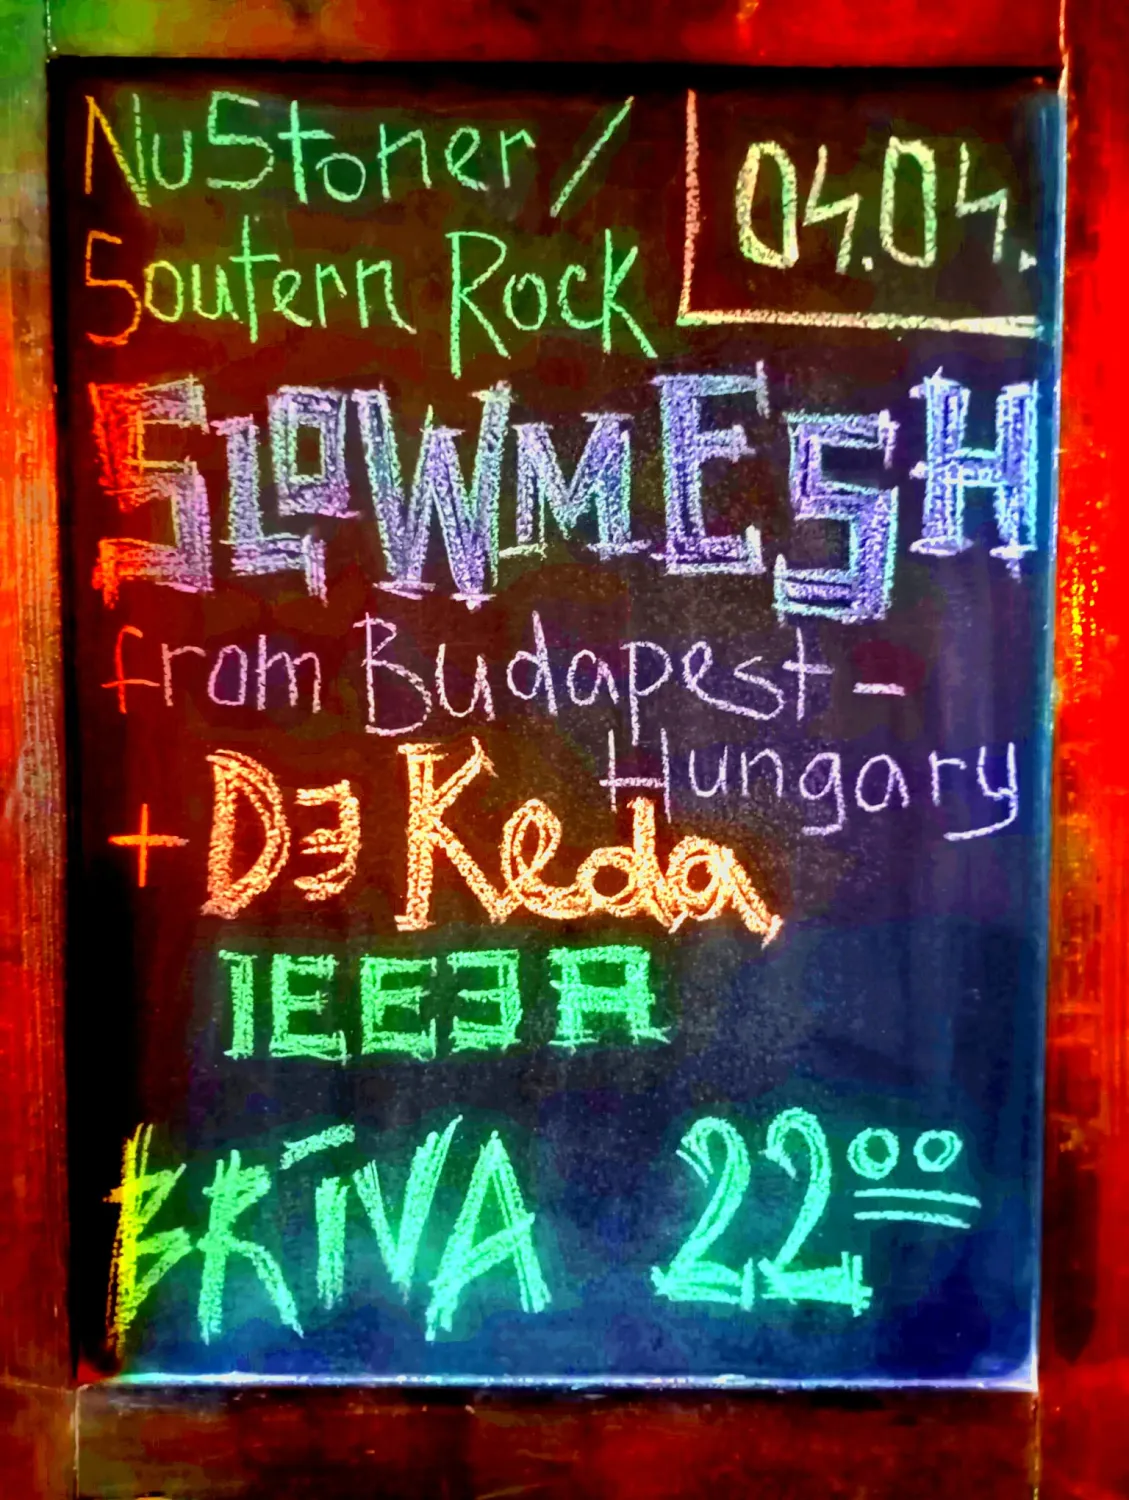 NuStoner /
Soutern Rock
04.04.
SLOWMESH
from Budapest -
Hungary
+ DJ Keda
IEEJA
BRĪVA 22⁰⁰